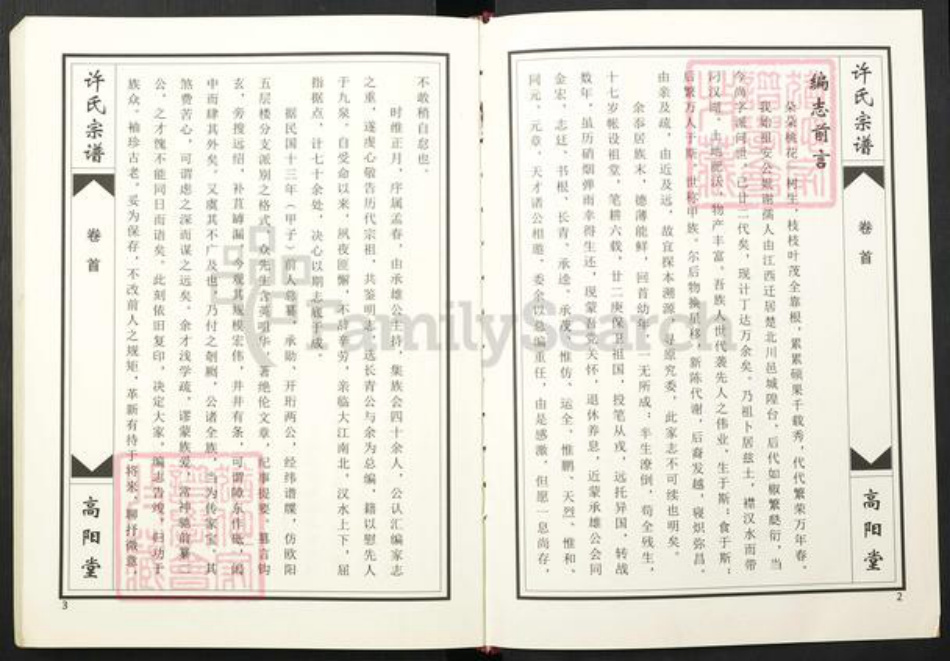 许氏宗谱
卷首
高阳堂
2
编志前言
朵朵桃花一树生，枝枝叶茂全靠根，累累硕果千载秀，代代繁荣万年春。
我始祖安公妣谢孺人由江西迁居楚北川邑城隍台，后代如椒繁瓞衍，当
今尚字派问世，已廿二代矣，现计丁达万余矣。乃祖卜居兹土，襟汉水而带
刁汊，土地肥沃，物产丰富。吾族人世代袭先人之伟业，生于斯；食于斯；
后繁万人于斯，世称甲族。尔后物换星移，新陈代谢，后裔发越，寝炽弥昌。
由亲及疏，由近及远，故宜探本溯源，寻原究委，此家志不可续也明矣。
余忝居族末，德薄能鲜，回首幼年，一无所成；半生潦倒，苟全残生，
十七岁帐设祖堂，笔耕六载，廿二庚保卫祖国，投笔从戎，远托异国，转战
数年，虽历硝烟弹雨幸得生还，现蒙吾党关怀，退休养息，近蒙承雄公会同
金宏、志廷、书根、长青、承逵、承茂、惟仿、运全、惟鹏、天烈、惟和、
同元、元章、天才诸公相邀，委余以总编重任，由是感激，但愿一息尚存，
不敢稍自怠也。
时维正月，序属孟春，由承雄公主持，集族会四十余人，公认汇编家志
之重，遂虔心敬告历代宗祖，共鉴明志，选长青公与余为总编，籍以慰先人
于九泉，自受命以来，夙夜匪懈，不辞辛劳，亲临大江南北，汉水上下，屈
指据点，计七十余处，决心以期志底于成。
据民国十三年（甲子）前人总纂，承勋、开珩两公，经纬谱牒，仿欧阳
五层楼分支派别之格式，众先生含英咀华，著绝伦文章，纪事提要，纂言钩
玄，旁搜远绍，补苴罅漏，今观其规模宏伟，井井有条，可谓障东作砥，闳
中而肆其外矣，又虞其不广及也，乃付之剞劂，公诸全族，当为传家宝，其
煞费苦心，可谓虑之深而谋之远矣。余才浅学疏，谬蒙族爱，常神驰前纂二
公，之才愧不能同日而语矣。此刻依旧复印，决定大家，编志告竣，归功于
族众，袖珍古老，妥为保存，不改前人之规矩，革新有待于将来，聊抒微意，
许氏宗谱
卷首
高阳堂
3
FamilySearch